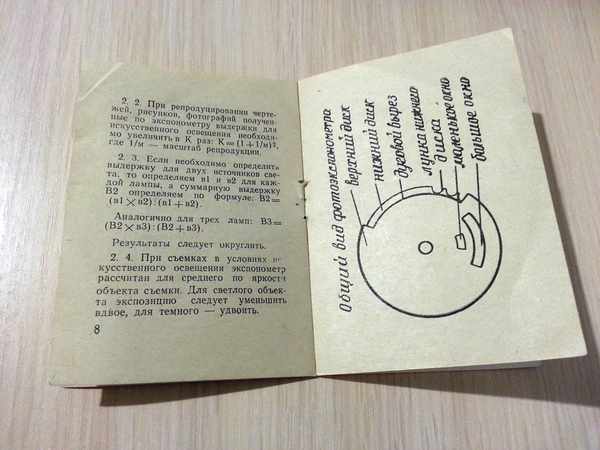 2. 2. При репродуцировании черте-
жей, рисунков, фотографий получен-
ные по экспонометру выдержки для
искусственного освещения необходи-
мо увеличить в К раз: К=(1+1/м)²,
где 1/м — масштаб репродукции.
2. 3. Если необходимо определить
выдержку для двух источников све-
та, то определяем в1 и в2 для каж-
дой лампы, а суммарную выдержку
В2 определяем по формуле: В2=
(в1×в2):(в1+в2).
Аналогично для трех ламп: В3=
(В2×в3):(В2+в3).
Результаты следует округлить.
2. 4. При съемках в условиях ис-
кусственного освещения экспонометр
рассчитан для среднего по яркости
объекта съемки. Для светлого объек-
та экспозицию следует уменьшить
вдвое, для темного — удвоить.
8
Общий вид фотоэкспонометра
верхний диск
нижний диск
дуговой вырез
лунка нижнего
диска
маленькое окно
большое окно